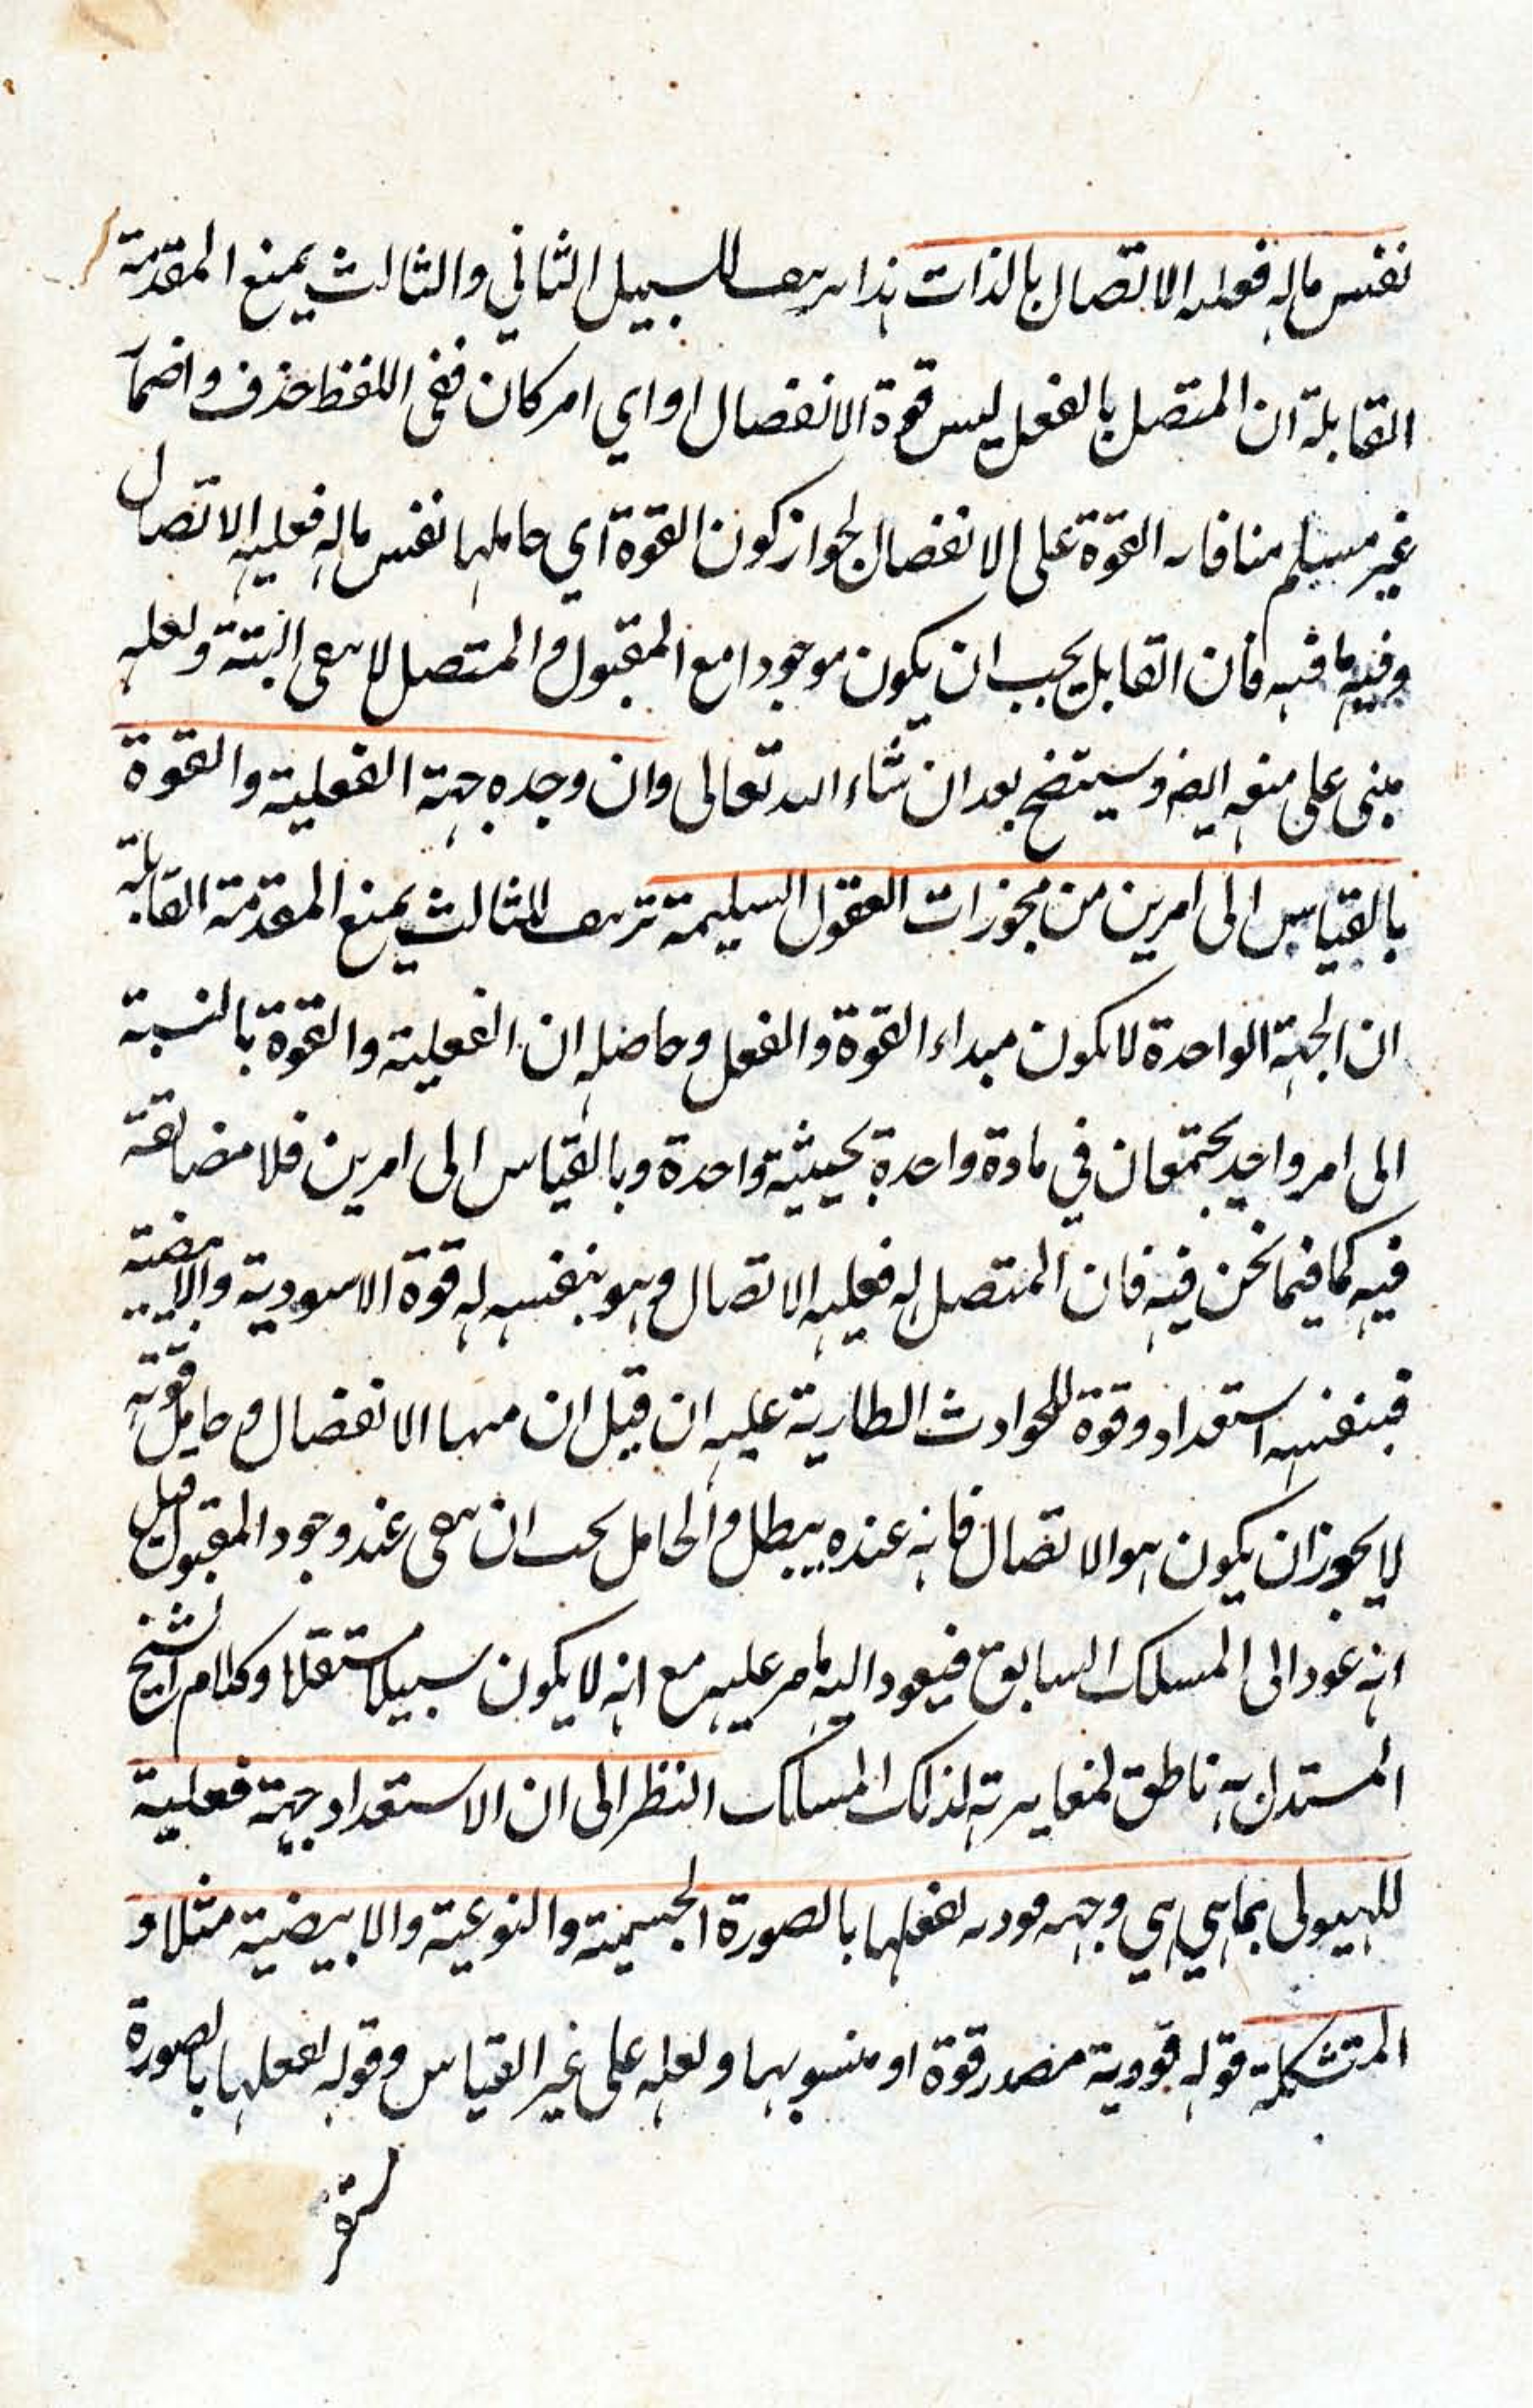 نفس ماله فعلية الاتصال بالذات هذا تزييف للسبيل الثاني والثالث يمنع المقدمة
القابلة ان المتصل بالفعل ليس قوة الانفصال او اي امر كان ففي اللفظ حذف واضمار
غير مسلم منافاة القوة على الانفصال لجواز كون القوة اي حاملها نفس ماله فعلية الاتصال
وفيه ما فيه فان القابل يجب ان يكون موجودا مع المقبول والمتصل لا يبقى البتة ولعله
مبنى على منعه ايضا وسيتضح بعد ان شاء الله تعالى وان وجده جهة الفعلية والقوة
بالقياس الى امرين من مجوزات العقول السليمة تزييف للثالث يمنع المقدمة القابلة
ان الجهة الواحدة لا يكون مبداء القوة والفعل وحاصله ان الفعلية والقوة بالنسبة
الى امر واحد يجتمعان في مادة واحدة بحيثية واحدة وبالقياس الى امرين فلا مضايقة
فيه كما فيما نحن فيه فان المتصل له فعلية الاتصال وهو بنفسه له قوة الاسودية والابيضية
فبنفسه استعداد وقوة للحوادث الطارية عليه ان قيل ان منها الانفصال وحامل قوته
لا يجوز ان يكون هو الاتصال فانه عنده يبطل والحامل يجب ان يبقى عند وجود المقبول قيل
انه عود الى المسلك السابق فيعود اليه ما مر عليه مع انه لا يكون سبيلا مستقلا وكلام الشيخ
المستدل به ناطق لمغايرته لذلك المسلك النظر الى ان الاستعداد جهة فعلية
للهيولى بما هي هي وجهه قودية لفعلها بالصورة الجسمية والنوعية والابيضية مثلا و
المتشكلة قوله قووية مصدر قوة او منسوبها ولعله على غير القياس وقوله لفعلها بالصورة